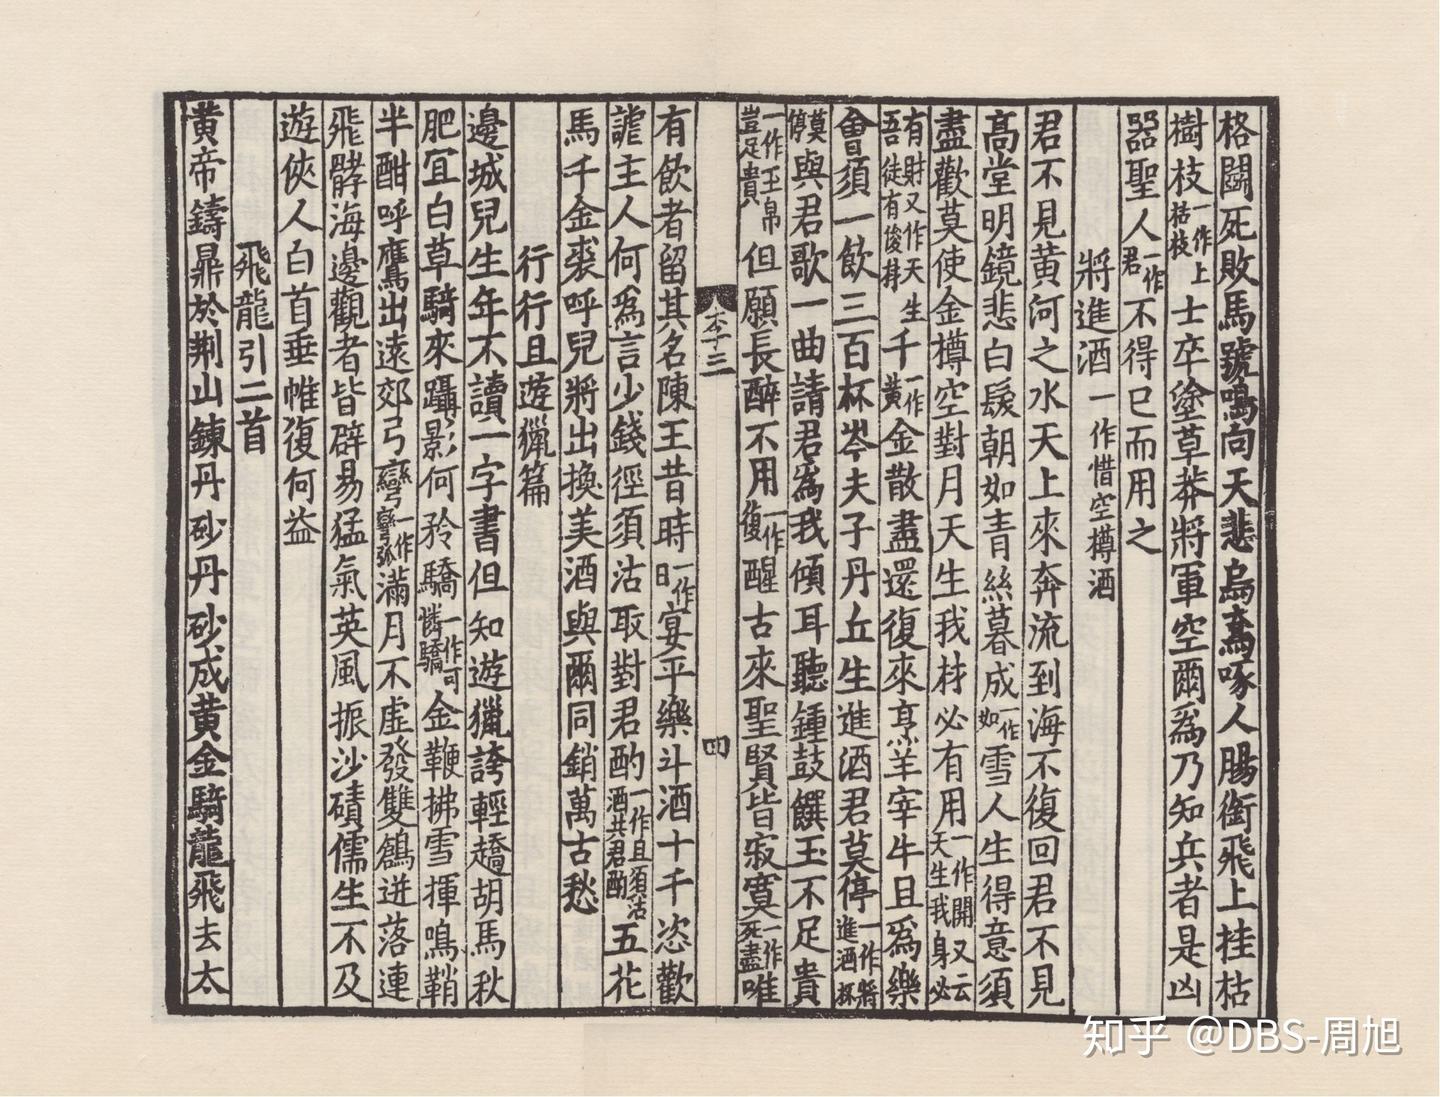 格鬬死敗馬號鳴向天悲烏鳶啄人腸銜飛上挂枯
樹枝一作上枯枝士卒塗草莽將軍空爾爲乃知兵者是凶
器聖人一作君不得已而用之
將進酒一作惜空樽酒
君不見黃河之水天上來奔流到海不復回君不見
高堂明鏡悲白髮朝如青絲暮成一作如雪人生得意須
盡歡莫使金樽空對月天生我材必有用一作開又云天生我身必
有財又作天生吾徒有俊材千一作黃金散盡還復來烹羊宰牛且爲樂
會須一飲三百杯岑夫子丹丘生進酒君莫停一作將進酒杯
莫停與君歌一曲請君爲我傾耳聽鍾鼓饌玉不足貴
一作玉帛豈足貴但願長醉不用一作復醒古來聖賢皆寂寞一作死盡唯
本三
四
有飲者留其名陳王昔時一作日宴平樂斗酒十千恣歡
謔主人何爲言少錢徑須沽取對君酌一作且須沽酒共君酌五花
馬千金裘呼兒將出換美酒與爾同銷萬古愁
行行且遊獵篇
邊城兒生年不讀一字書但知遊獵誇輕趫胡馬秋
肥宜白草騎來躡影何矜驕一作可憐驕金鞭拂雪揮鳴鞘
半酣呼鷹出遠郊弓彎一作彎弧滿月不虛發雙鶬迸落連
飛髇海邊觀者皆辟易猛氣英風振沙磧儒生不及
遊俠人白首垂帷復何益
飛龍引二首
黃帝鑄鼎於荆山鍊丹砂丹砂成黃金騎龍飛去太
知乎 @DBS-周旭